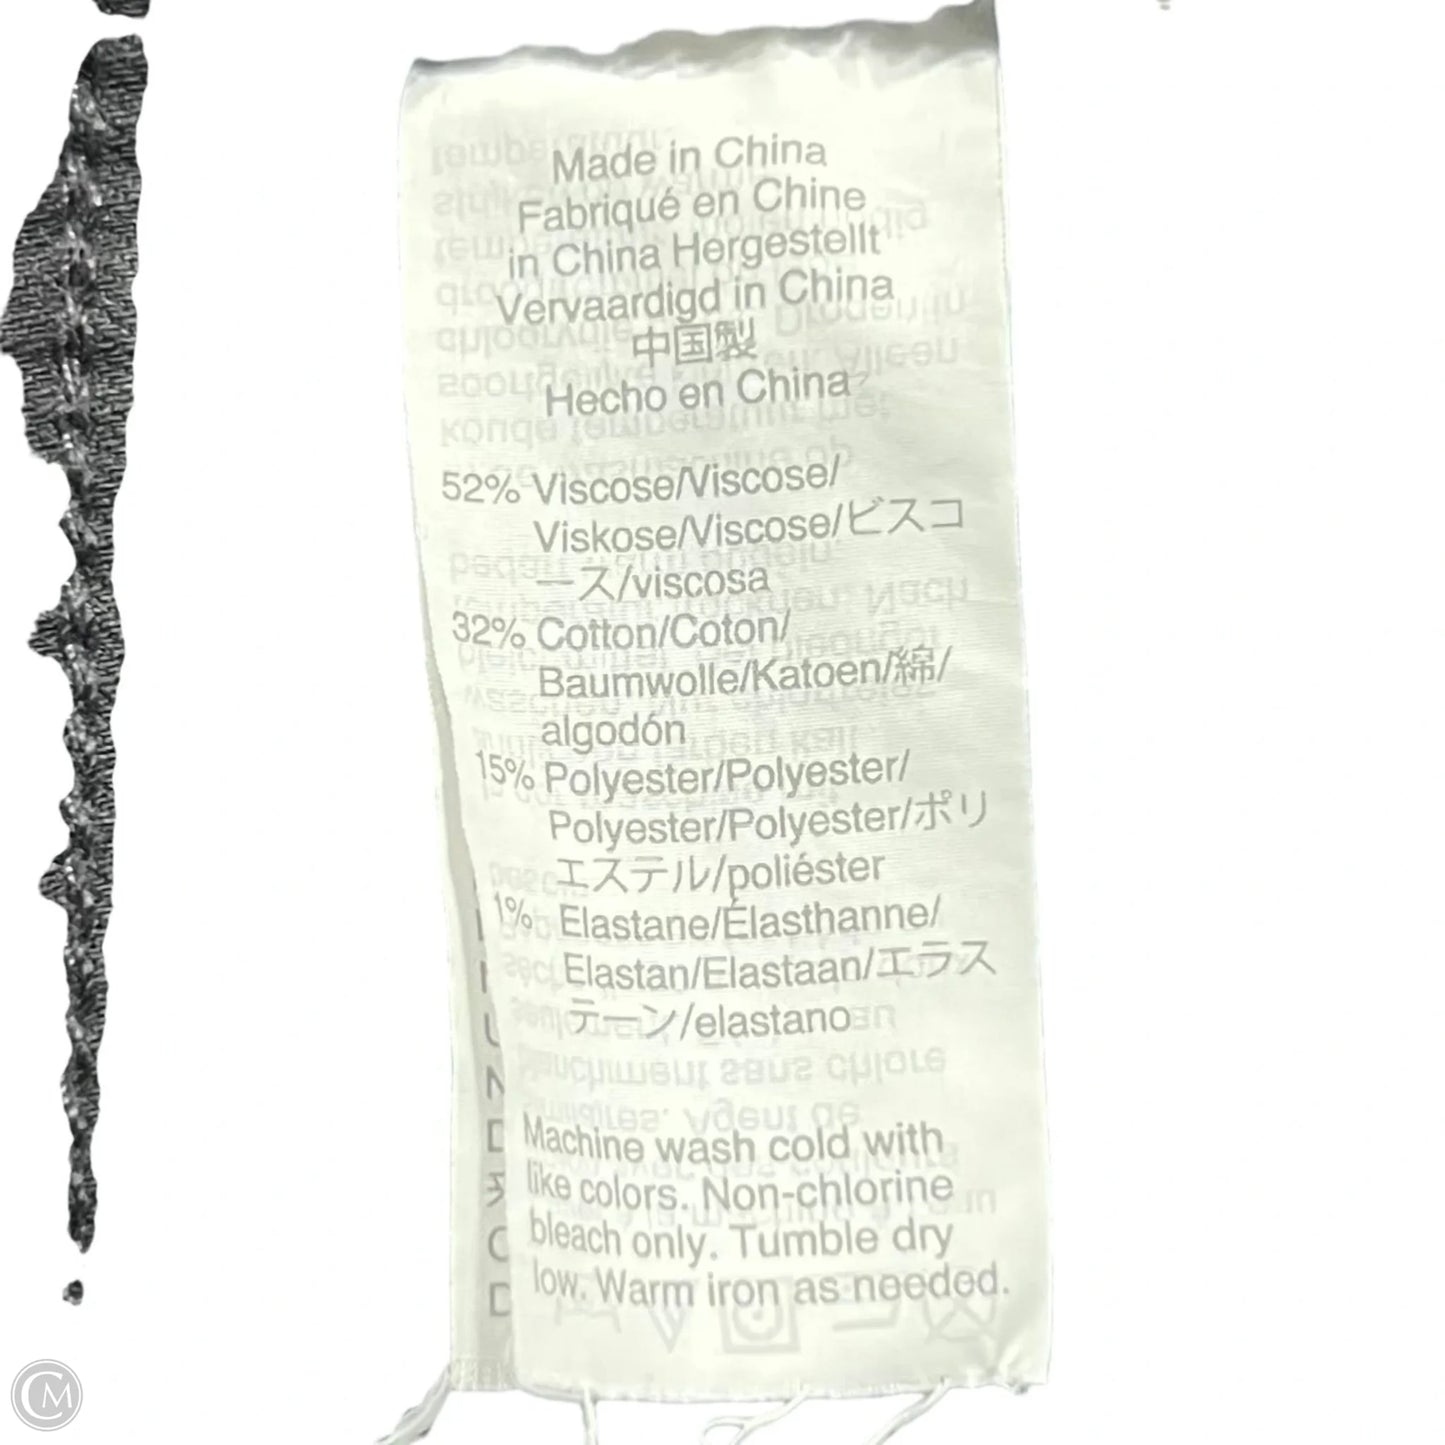 Made in China
Fabriqué en Chine
in China Hergestellt
Vervaardigd in China
中国製
Hecho en China
52% Viscose/Viscose/
Viskose/Viscose/ビスコ
ース/viscosa
32% Cotton/Coton/
Baumwolle/Katoen/綿/
algodón
15% Polyester/Polyester/
Polyester/Polyester/ポリ
エステル/poliéster
1% Elastane/Élasthanne/
Elastan/Elastaan/エラス
テーン/elastano
Machine wash cold with
like colors. Non-chlorine
bleach only. Tumble dry
low. Warm iron as needed.
CM